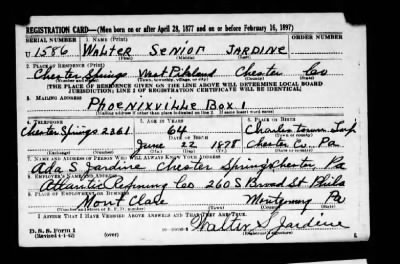 REGISTRATION CARD—(Men born on or after April 28, 1877 and on or before February 16, 1897)
SERIAL NUMBER 1. NAME (Print) ORDER NUMBER
U 1586 WALTER SENIOR JARDINE
(First) (Middle) (Last)
2. PLACE OF RESIDENCE (Print)
Chester Springs West Pikeland Chester Co
(Number and street) (Town, township, village, or city) (County) (State)
[THE PLACE OF RESIDENCE GIVEN ON THE LINE ABOVE WILL DETERMINE LOCAL BOARD
JURISDICTION; LINE 2 OF REGISTRATION CERTIFICATE WILL BE IDENTICAL]
3. MAILING ADDRESS
PHOENIXVILLE BOX 1
[Mailing address if other than place indicated on line 2. If same insert word same]
4. TELEPHONE 5. AGE IN YEARS 6. PLACE OF BIRTH
Chester Springs 2361 64 Charlestown Twp
DATE OF BIRTH (Town or county)
June 22 1878 Chester Co. Pa.
(Exchange) (Number) (Mo.) (Day) (Yr.) (State or country)
7. NAME AND ADDRESS OF PERSON WHO WILL ALWAYS KNOW YOUR ADDRESS
Ada E. Jardine Chester Springs, Chester, Pa
8. EMPLOYER'S NAME AND ADDRESS
Atlantic Refining Co 260 S Broad St Phila
9. PLACE OF EMPLOYMENT OR BUSINESS
Mont Clare Montgomery Pa
(Number and street or R. F. D. number) (Town) (County) (State)
I AFFIRM THAT I HAVE VERIFIED ABOVE ANSWERS AND THAT THEY ARE TRUE.
Walter S. Jardine
D. S. S. Form 1
(Revised 4-1-42) (over) (Registrant's signature)